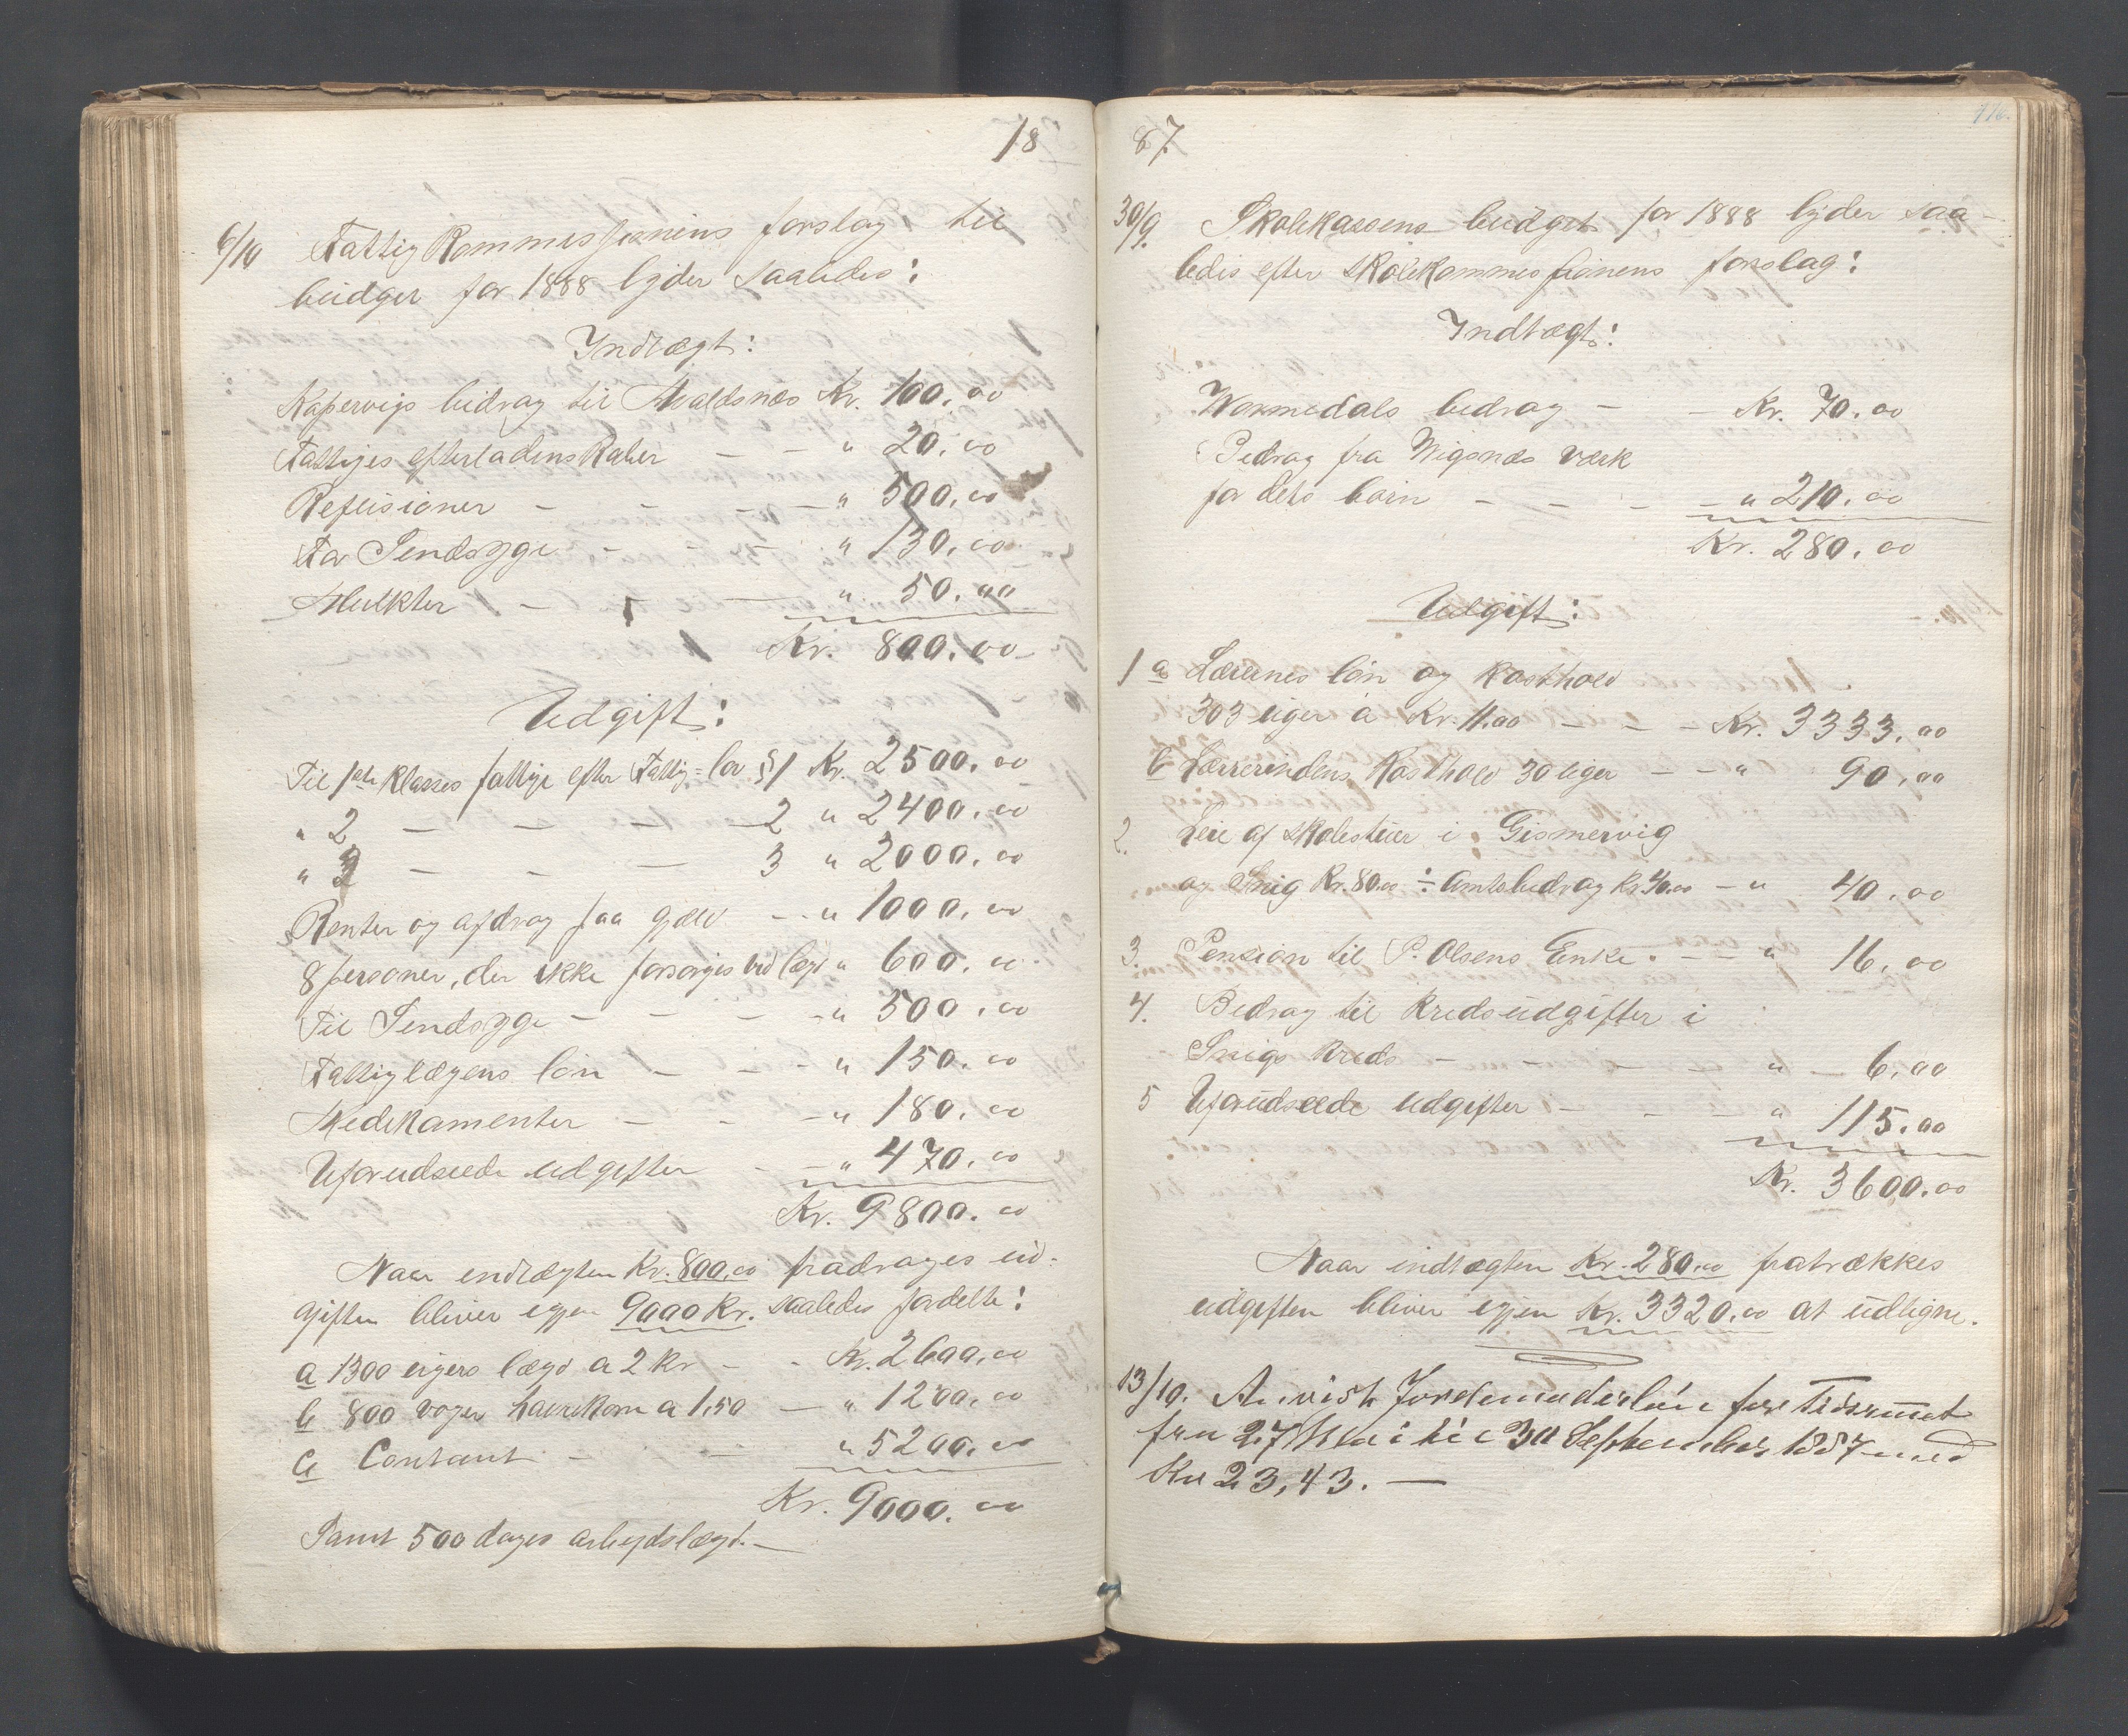 18
6/10 Fattigkommissionens forslag til
budget for 1888 lyder saaledes:
Indtægt:
Kopervigs bidrag til Avaldsnes Kr. 100.00
Fattiges efterladenskaber — — " 20.00
Refusioner — — — — " 500.00
For Sindsyge — — — " 130.00
Mulkter — — — " 50.00
Kr. 800.00
Udgift:
Til 1ste klasses fattige efter Fattig-lov § 1 Kr. 2500.00
" 2 — — — — 2 " 2400.00
" 3 — — — 3 " 2000.00
Renter og afdrag paa gjæld — " 1000.00
8 personer, der ikke forsørges ved lægd " 600.00
Til Sindsyge — — — " 500.00
Fattiglægens løn — — — " 150.00
Medikamenter — — — " 180.00
Uforudseede udgifter — — " 470.00
Kr. 9800.00
Naar indtægten Kr. 800,00 fradrages ud-
giften bliver igjen 9000 Kr. saaledes fordelte:
a 1300 ugers lægd a 2 Kr — — Kr. 2600.00
b 800 voger havrekorn a 1,50 — " 1200.00
c Contant — — — " 5200.00
Kr. 9000.00
Samt 500 dages arbejdslægd. —
87.
116.
30/9. Skolekassens budget for 1888 lyder saa-
ledes efter skolekommissionens forslag:
Indtægt:
Wormedals bidrag — — Kr. 70.00
Bidrag fra Wigsnæs værk
for dets børn — — — — " 210.00
Kr. 280.00
Udgift:
1 a Lærernes løn og kosthold
303 uger a Kr. 11.00 — — — Kr. 3333.00
b Lærerindens Kosthold 30 uger — — " 90.00
2. Leie af skolestuer i Gismervig
og Snig Kr. 80.00 ÷ Amtsbidrag Kr. 40.00 — " 40.00
3. Pension til P. Olsens Enke. — — " 16.00
4. Bidrag til kredsudgifter i
Snigs kreds — — — — " — 6.00
5 Uforudseede udgifter — — — " 115.00
Kr. 3600.00
Naar indtægten Kr. 280.00 fratrækkes
udgiften bliver igjen Kr. 3320.00 at udligne.
13/10. Anvist Jordemoderløn for Tidsrumet
fra 27 Mai til 30 September 1887 med
Kr 23,43. —